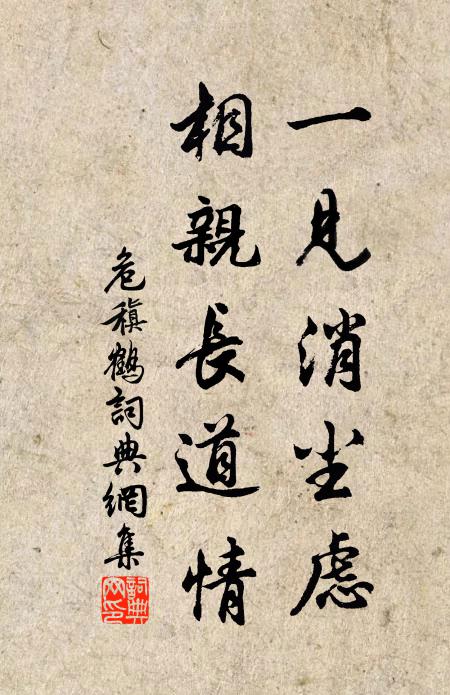 一見消尘慮
相親長道情
危稹鶴詞典網集
詞典網印